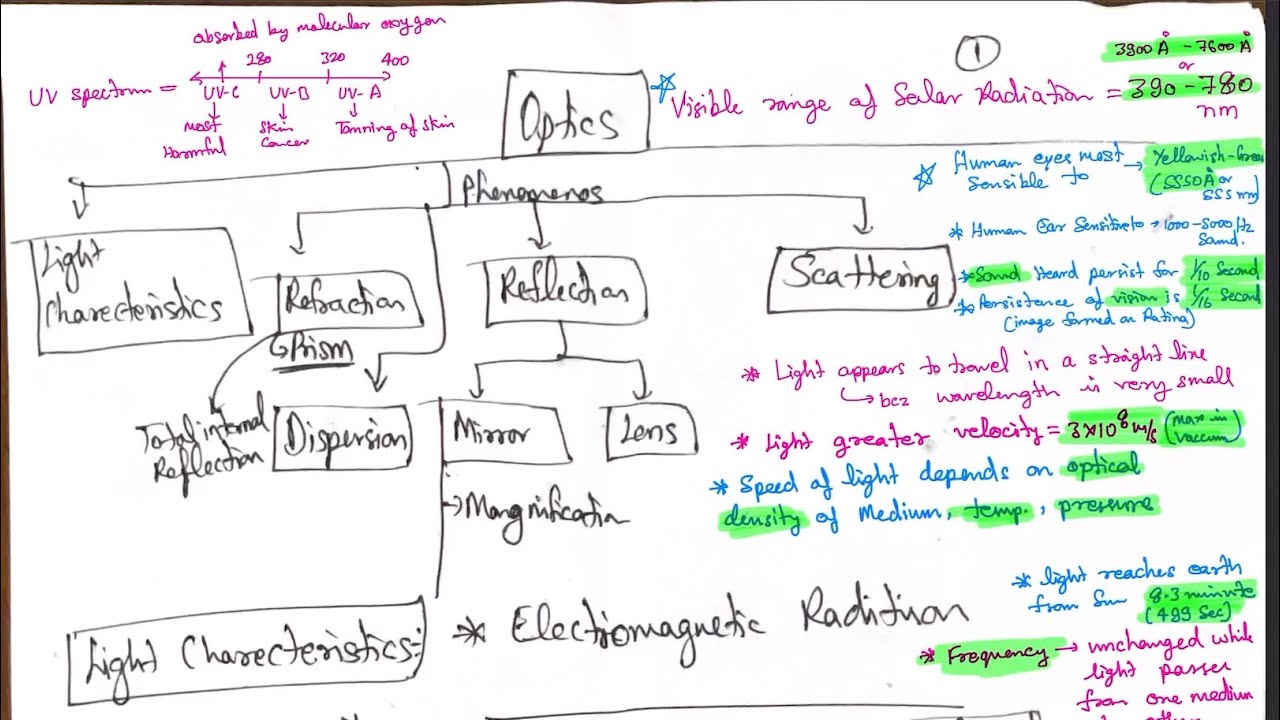 absorbed by molecular oxygen
280 320 400
UV spectrum =
UV-C UV-B UV-A
most Harmful
Skin Cancer
Tanning of skin
1
3900 Å - 7600 Å
or
Visible range of Solar Radiation = 390-780
nm
Optics
Phenomenos
Human eyes most → Yellowish-Green
Sensible to (5550 Å or
555 nm)
* Human Ear Sensitive to → 1000-5000 Hz
Sound.
Light
Charecteristics
Refraction
Reflection
Scattering
* Sound Heard persist for 1/10 Second
* Persistence of vision is 1/16 Second
(image formed on Ratina)
Prism
Total internal
Reflection
Dispersion
Mirror
Lens
* Light appears to travel in a straight line
bcz wavelength is very small
* Light greater velocity = 3×10⁸ m/s (max in
vaccum)
→ Mangnification
* Speed of light depends on optical
density of Medium, temp., pressure
* light reaches earth
from Sun 8.3 minute
(499 Sec)
Light Charecteristics:-
* Electromagnetic Radition
* Frequency → unchanged while
light passes
from one medium